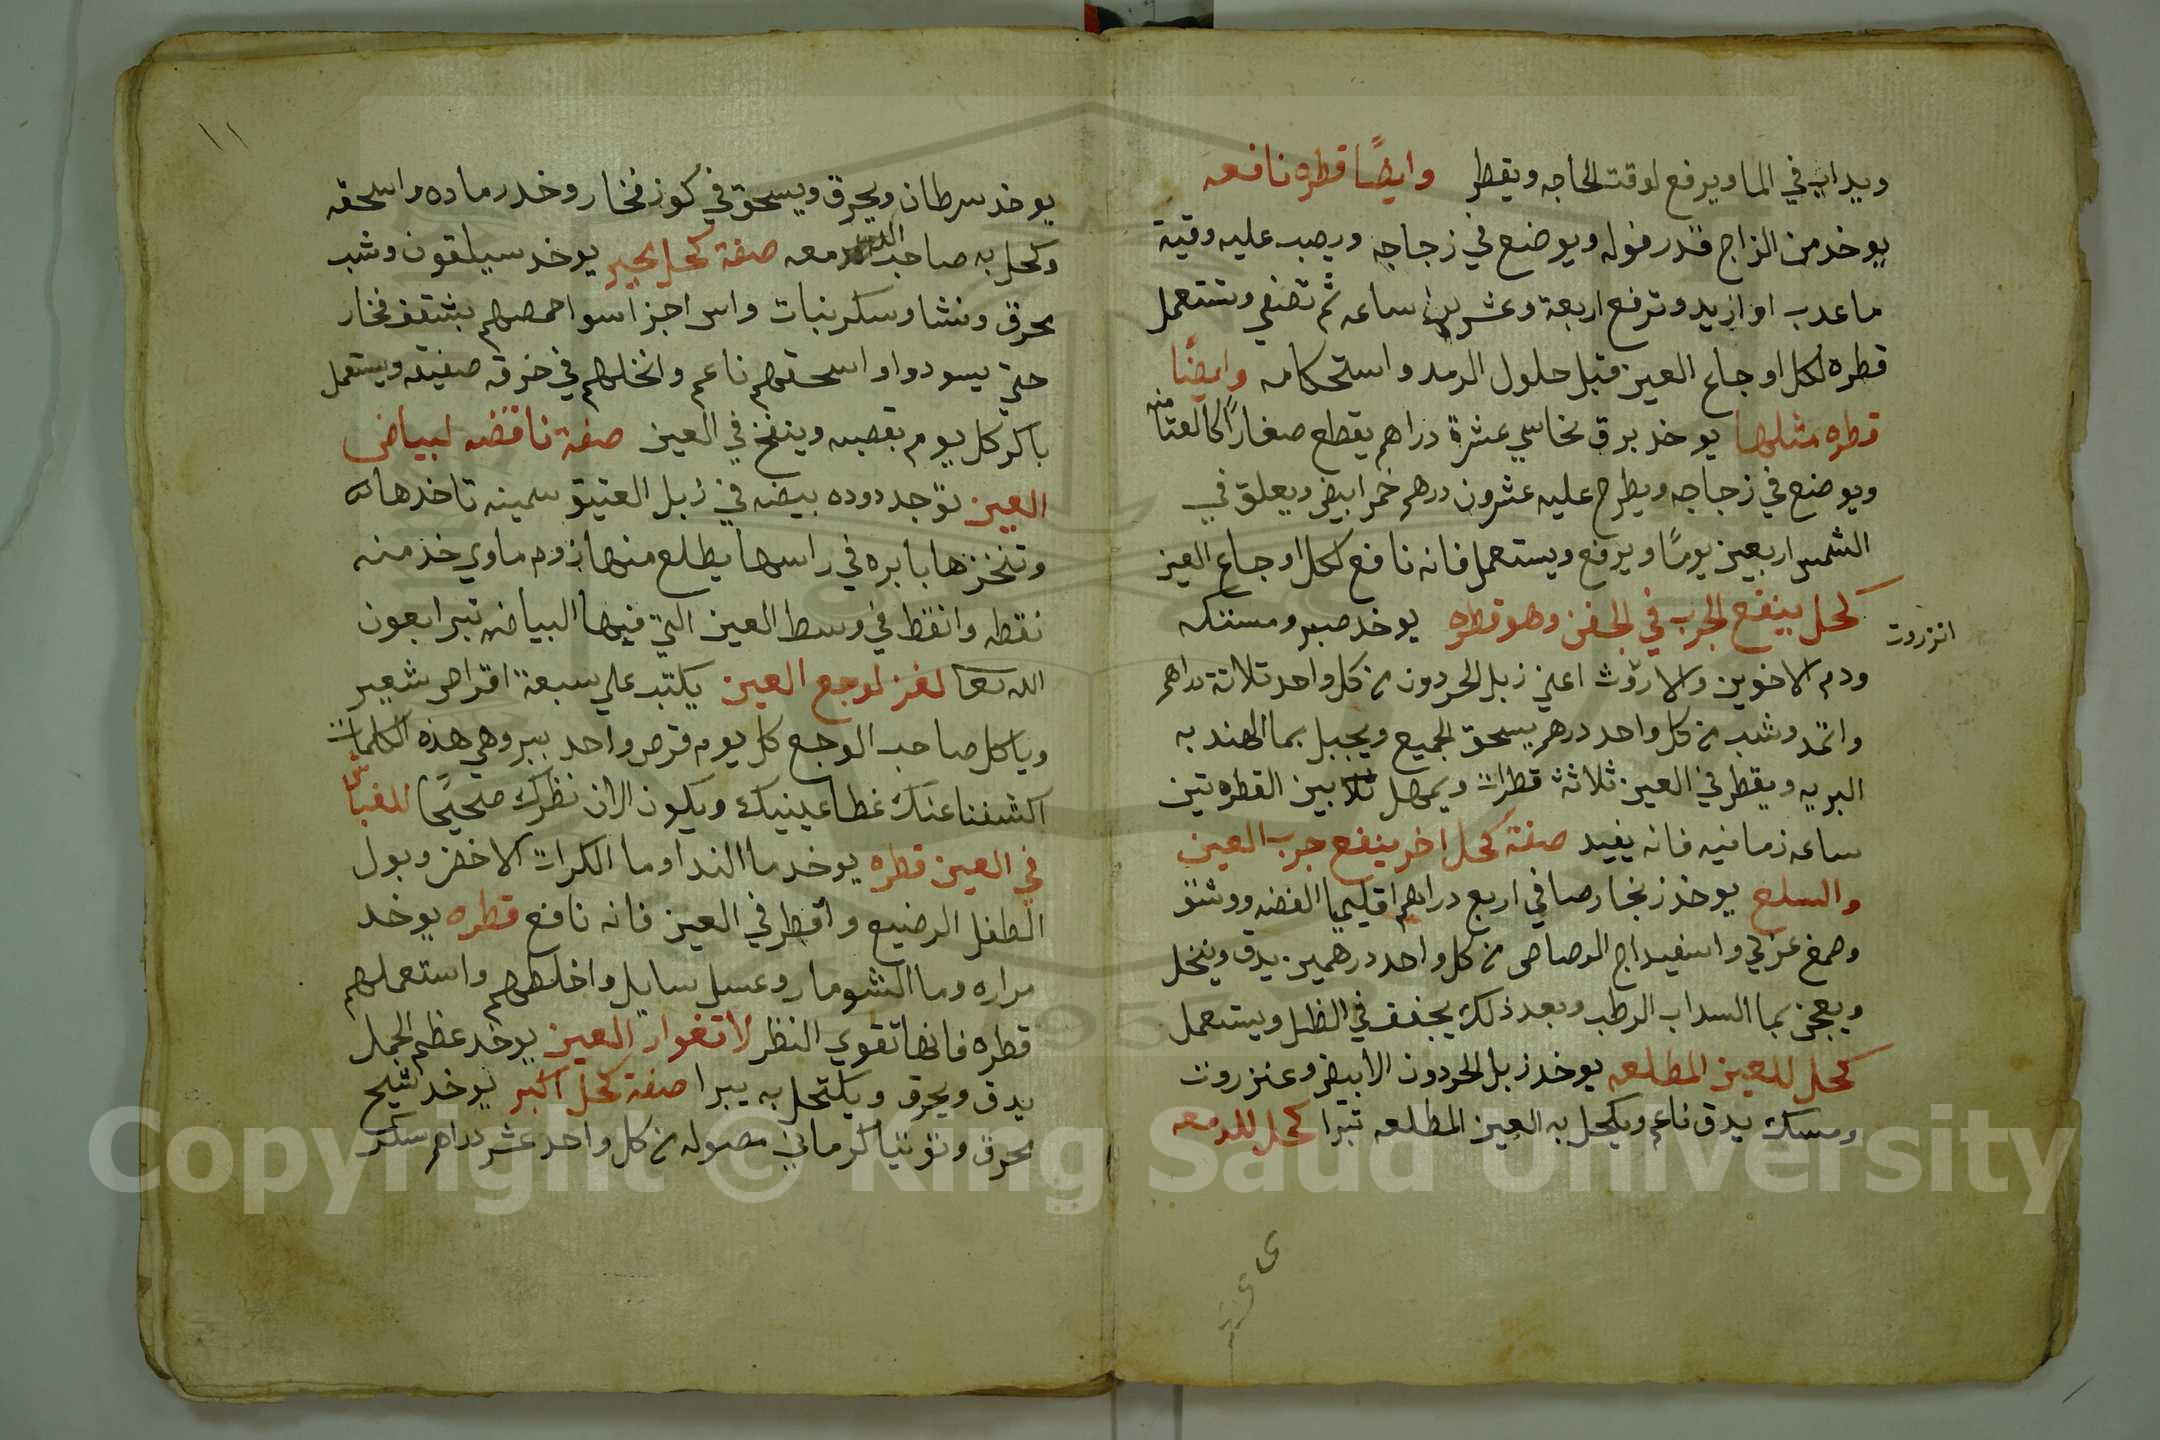 ويداب في الما ويرفع لوقت الحاجه ويقطر وايضًا قطره نافعه
يوخد من الزاج قدر فوله ويوضع في زجاجه ويصب عليه وقية
ما عدب او ازيد وترفع اربعة وعشرين ساعه ثم تصفي وتستعمل
قطره لكل اوجاع العين قبل حلول الرمد واستحكامه وايضًا
قطره مثلها يوخد برق نحاسي عشرة دراهم يقطع صغارًا
ويوضع في زجاجه ويطرح عليه عشرون درهم خمر ابيض ويعلق في
الشمس اربعين يومًا ويرفع ويستعمل فانه نافع لكل اوجاع العين
كحل ينفع الجرب في الجفن وهو قطره يوخد صبر ومستكه
انزروت
ودم الاخوين والاروث اعني زبل الحردون من كل واحد تلاتة دراهم
واتمد وشب من كل واحد درهم يسحق الجميع ويجبل بما الهندبه
البريه ويقطر في العين ثلاثة قطرات ويمهل بين القطره تين
ساعه زمانيه فانه يفيد صفة كحل اخر ينفع جرب العين
والسلع يوخد زنجار صافي اربع دراهم اقليميا الفضه ووشق
وصمغ عربي واسفيداج الرصاص من كل واحد درهمين يدق وينخل
ويعجن بما السداب الرطب وبعد ذلك يجفف في الظل ويستعمل
كحل للعين المطلعه يوخد زبل الحردون الابيض وعنزروت
ومسك يدق ناعم ويكحل به العين المطلعه تبرا كحل للدمعه
١١
يوخد سرطان ويحرق ويسحق في كوز فخار وخد رماده واسحقه
وكحل به صاحب الدمعه صفة كحل يوخد سيلقون وشب
محرق ونشا وسكر نبات واس اجزا سوا حمصهم بشقف فخار
حتي يسودوا واسحقهم ناعم وانخلهم في خرقه صفيقه ويستعمل
باكر كل يوم بقصبه وينفخ في العين صفة نافضه لبياض
العين توجد دوده بيضه في زبل العتيق سمينه تاخدها
وتنخزها بابره في راسها يطلع منها زوم ماوي خد منه
نقطه وانقط في وسط العين التي فيها البياض تبرا بعون
الله تعا لغز لوجع العين يكتب علي سبعة اقراص شعير
وياكل صاحب الوجع كل يوم قرص واحد يبر وهي هذه الكلمات
اكشفنا عنك غطا عينيك ويكون الان نظرك صحيحًا للغباش
في العين قطره يوخد ما الندا وما الكرات الاخضر وبول
الطفل الرضيع واقطر في العين فانه نافع قطره يوخد
مراره وما الشومار وعسل سايل واخلطهم واستعملهم
قطره فانها تقوي النظر لاتغوار العين يوخد عظم الجمل
يدق ويحرق ويكتحل به يبرا صفة كحل اكبر يوخد شيح
محرق وتوتيا كرماني مصوله من كل واحد عشر دراهم سكر
Copyright © King Saud University